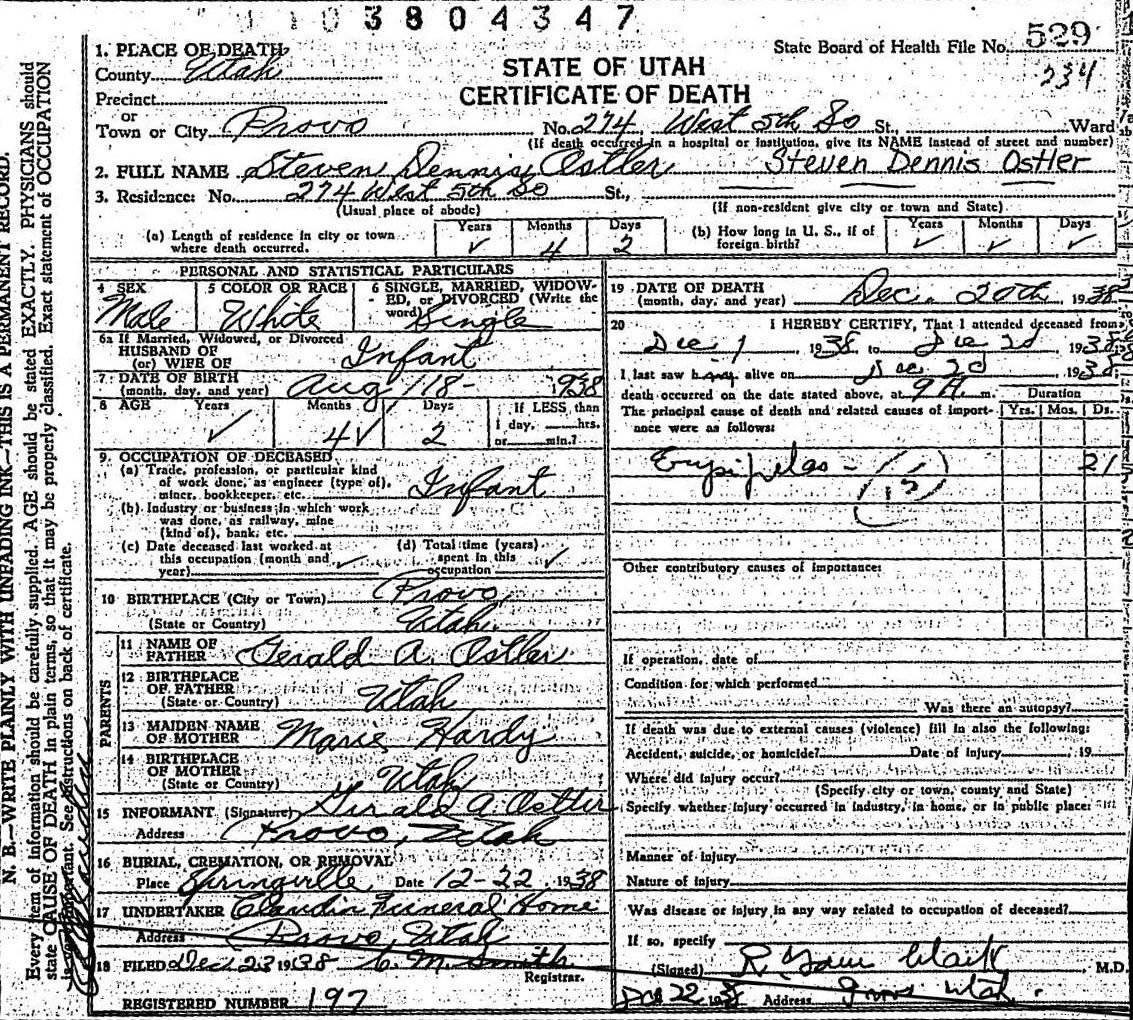 3804347
State Board of Health File No. 529
234
STATE OF UTAH
CERTIFICATE OF DEATH
1. PLACE OF DEATH
County Utah
Precinct
or
Town or City Provo No. 274 West 5th So St., Ward
(If death occurred in a hospital or institution, give its NAME instead of street and number)
2. FULL NAME Steven Dennis Ostler Steven Dennis Ostler
3. Residence: No. 274 West 5th So St.,
(Usual place of abode) (If non-resident give city or town and State)
(a) Length of residence in city or town where death occurred. Years ✓ Months 4 Days 2 (b) How long in U. S., if of foreign birth? Years ✓ Months ✓ Days ✓
PERSONAL AND STATISTICAL PARTICULARS
4 SEX 5 COLOR OR RACE 6 SINGLE, MARRIED, WIDOW-
ED, or DIVORCED (Write the
word)
Male White Single
6a If Married, Widowed, or Divorced
HUSBAND OF
(or) WIFE OF Infant
7 DATE OF BIRTH
(month, day, and year) Aug 18- 1938
8 AGE Years ✓ Months 4 ✓ Days 2 If LESS than
1 day, hrs.
or min.?
9. OCCUPATION OF DECEASED
(a) Trade, profession, or particular kind
of work done, as engineer (type of),
miner, bookkeeper, etc. Infant
(b) Industry or business in which work
was done, as railway, mine
(kind of), bank, etc.
(c) Date deceased last worked at
this occupation (month and
year) ✓
(d) Total time (years)
spent in this
occupation ✓
10 BIRTHPLACE (City or Town) Provo
(State or Country) Utah.
PARENTS
11 NAME OF
FATHER Gerald A. Ostler
12 BIRTHPLACE
OF FATHER
(State or Country) Utah
13 MAIDEN NAME
OF MOTHER Marie Hardy
14 BIRTHPLACE
OF MOTHER
(State or Country) Utah
15 INFORMANT (Signature) Gerald A Ostler
Address Provo, Utah
16 BURIAL, CREMATION, OR REMOVAL
Place Springville Date 12-22, 1938
17 UNDERTAKER Claudin Funeral Home
Address Provo, Utah
18 FILED Dec 23 1938 C. M. Smith
Registrar.
REGISTERED NUMBER 197
19 DATE OF DEATH
(month, day, and year) Dec. 20th 1938
20 I HEREBY CERTIFY, That I attended deceased from
Dec 1, 1938 to Dec 20 1938
I last saw him alive on Dec 20 1938
death occurred on the date stated above, at 9 A. m. Duration
The principal cause of death and related causes of import-
ance were as follows: Yrs. Mos. Ds.
Erysipelas - (15) 21
Other contributory causes of importance:
If operation, date of
Condition for which performed
Was there an autopsy?
If death was due to external causes (violence) fill in also the following:
Accident, suicide, or homicide? Date of injury 19
Where did injury occur?
(Specify city or town, county and State)
Specify whether injury occurred in industry, in home, or in public place:
Manner of injury
Nature of injury
Was disease or injury in any way related to occupation of deceased?
If so, specify
(Signed) R Clark, M.D.
Dec 22 1938 Address Provo Utah.
N. B.—WRITE PLAINLY WITH UNFADING INK—THIS IS A PERMANENT RECORD.
Every item of information should be carefully supplied. AGE should be stated EXACTLY. PHYSICIANS should
state CAUSE OF DEATH in plain terms, so that it may be properly classified. Exact statement of OCCUPATION
is very important. See instructions on back of certificate.